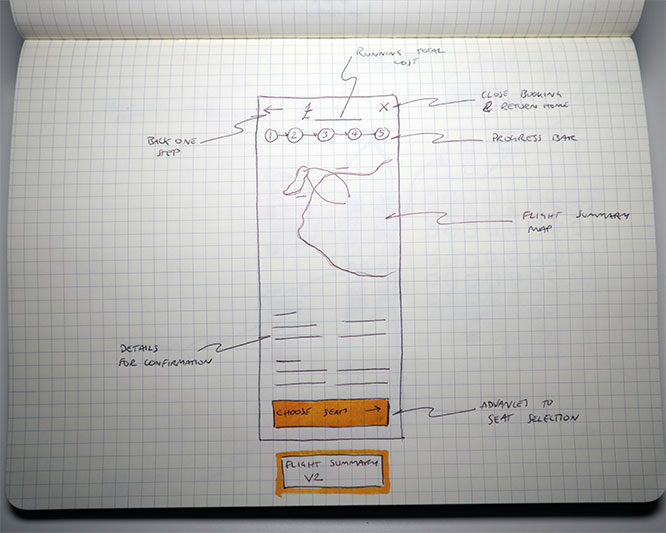 RUNNING TOTAL
COST
£
X
CLOSE BOOKING
& RETURN HOME
BACK ONE
STEP
1 2 3 4 5
PROGRESS BAR
FLIGHT SUMMARY
MAP
DETAILS
FOR CONFIRMATION
CHOOSE SEATS
ADVANCES TO
SEAT SELECTION
FLIGHT SUMMARY
V2